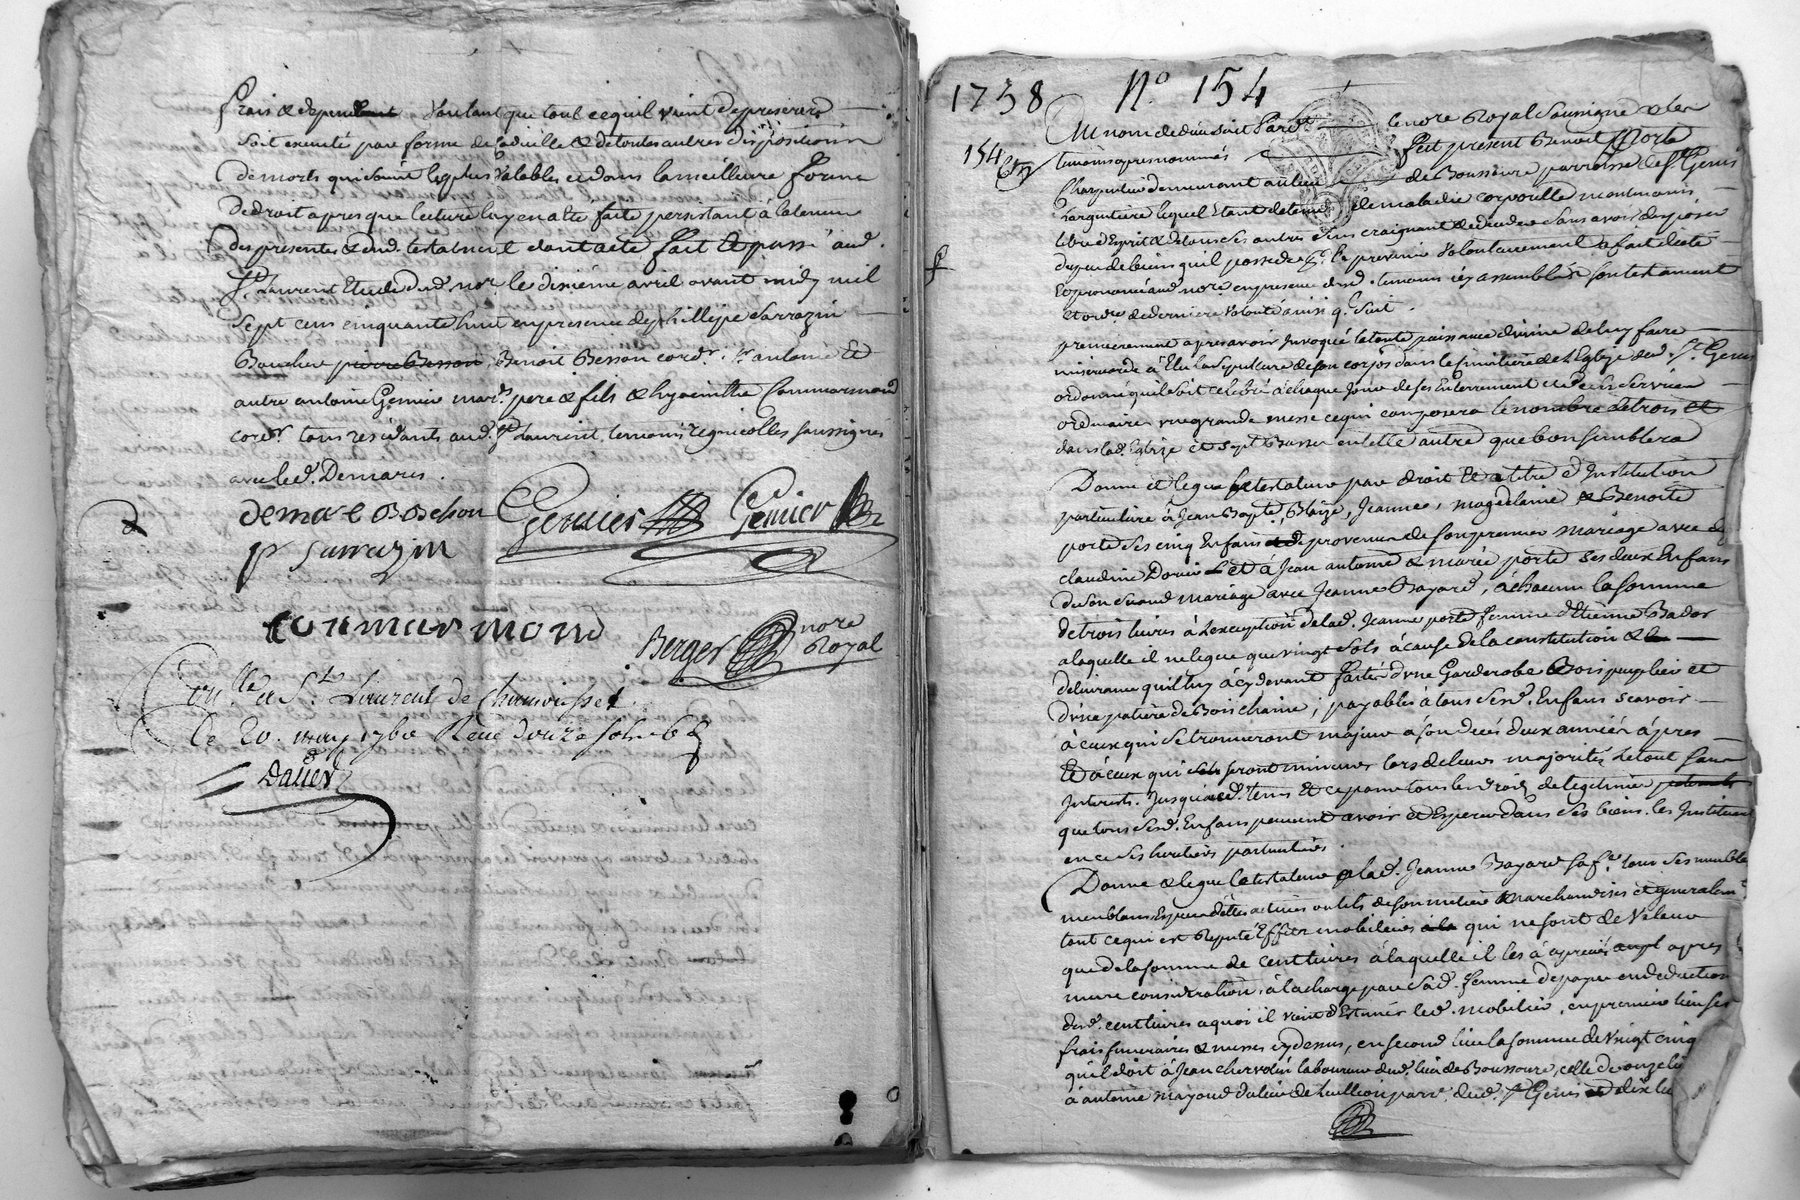 frais & dependent Voulant que tout ce quil vient de prescrire
soit executé par forme de Codicille & de toutes autres dispositions
de morts qui soint les plus Valables et dans la meilleure forme
de droit apres que lecture luy en a été faite persistant à la teneur
des presentes & dud. testament dont acte fait et passé aud.
St. Laurent Etude dud. nore. le dixiéme avril avant midy mil
sept cens cinquante huit en presence de phillipe Sarrazin
Boucher pierre Besson, Benoit Besson cordr. Sr. antoine Et
autre antoine Genier mards. pere & fils & hyacinthe Commarmond
cordr. tous residants aud. St. Laurent, temoins regnicolles soussignés
avec led. Demares.
Genier Genier
p sarrazin
commarmond
Berger nore Royal
Conlle. a St. Laurent de Chamousset
Le 20. may 1760 Receu douze sols 6 d
Dalier
1758 No. 154
154
Au nom de dieu soit Pardt. le nore Royal soussigné & les
temoins apres nommés fut present Benoit Porte
Charpentier demeurant au lieu de Boussoure parroisse de St. Genis
Largentiere lequel Etant detenu de maladie corporelle neantmoins
libre d'Esprit & de tous ses autres sens craignant de deceder sans avoir disposer
du peu de biens quil possede &c. le previenir Volontairement a fait dicté
Et prononcé aud. nore. en presence desd. temoins icy assemblés son testament
Et ordce. de derniere Volonté ainsi q. suit.
premierement apres avoir Invoqué la toute puissance divine de luy faire
misericorde à Elu la sepulture de son corps dans le cimitiere de l'Eglize dud. St. Genis
ordonne quil soit celebré à chaque jour de ses Enterrement et services
ordinaires une grande messe ce qui composera le nombre de trois Et
dans lad. Eglize et sept Basses en telle autre que bon semblera
Donne et legue le testateur par droit Et a titre d'Institution
particuliere à Jean Bapte, Blaize, Jeanne, magdelaine & Benoite
porte ses cinq Enfans provenus de son premier mariage avec
claudine Et a Jean antoine & marie porte ses deux Enfans
de son second mariage avec Jeanne Bayard, à chacun la somme
de trois livres à l'exception de lad. Jeanne porte femme d'Etienne Bador
a laquelle il ne legue que vingt sols à cause de la constitution &
delivrance quil luy à cy devant faite d'une Garderobe Bois peuplier et
d'une patiere de Bois chaine; payables à tous sesd. Enfans scavoir
à ceux qui se trouveront majeurs à son decés deux années àpres
Et à ceux qui seront mineurs lors de leurs majorités le tout sans
Interests. Jusqu'aud. tems Et ce pour tous les droits de legitimes
que tous sesd. Enfans peuvent avoir et Esperer dans ses biens. les Instituent
en ce ses heritiers particuliers
Donne & legue le testateur a lad. Jeanne Bayard sa fe. tous ses meubles
meublans Especes dettes actives outils de son metier marchandises et generalemt.
tout ce qui est reputé Effets mobiliers qui ne sont de Valeur
que de la somme de cent livres à laquelle il les à apreciés apres
mure consideration, à la charge par sad. femme de payer en deduction
desd. cent livres a quoi il vient d'Estimer led. mobilier, en premier lieu ses
frais funeraires & messes cy dessus, en second lieu la somme de Vingt cinq
quil doit à Jean chervolin laboureur dud. lieu de Boussoure, celle de onze li
à antoine mayoud du lieu de parr. dud. St. Genis dix li